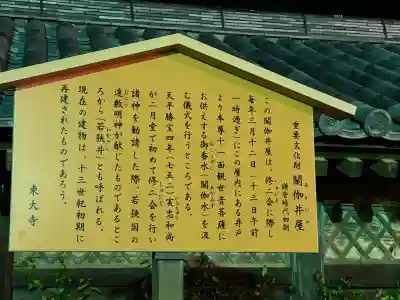 重要文化財 閼伽井屋
鎌倉時代初期
この閼伽井屋は、修二会に際し
毎年三月十二日(十三日午前
一時過ぎ)にこの屋内にある井戸
より本尊十一面観世音菩薩に
お供えする御香水(閼伽水)を汲
む儀式を行うところである。
天平勝宝四年(七五二)実忠和尚
が二月堂で初めて修二会を行い
諸神を勧請した際、若狭国の
遠敷明神が献じたものであるとこ
ろから「若狭井」とも呼ばれる。
現在の建物は、十三世紀初期に
再建されたものであろう。
東大寺